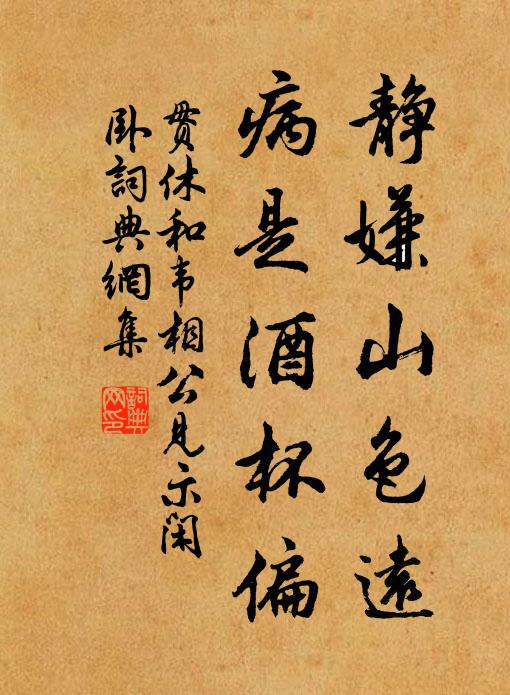 静嫌山色遠
病是酒杯偏
贯休和韦相公見示閑
卧詞典網集
詞典网印